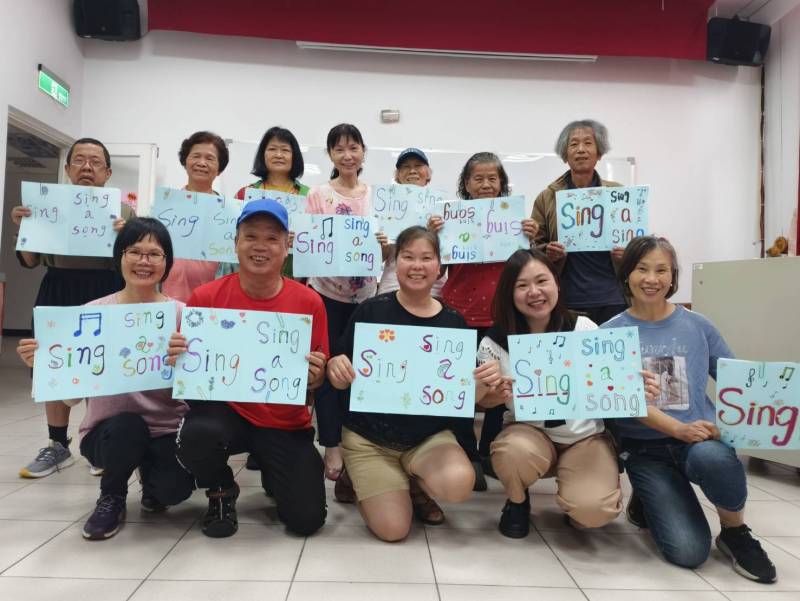 Sing
Sing
a
song
Sing
Sing
Sing
a
song
Sing
Sing
Sing
a
song
Sing
Sing
a
sing
Sing
Sing
a
song
Sing
Sing
a
Song
Sing
Sing
a
song
Sing
Sing
a
song
Sing